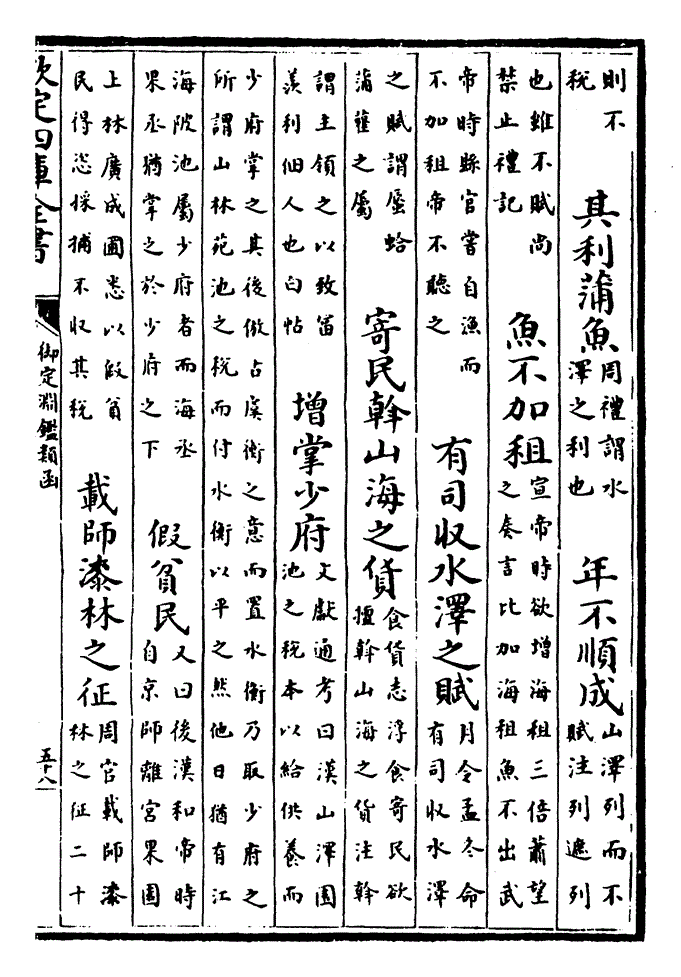 則不
稅
其利蒲魚
周禮謂水
澤之利也
年不順成
山澤列而不
賦注列遮列
也雖不賦尚
禁止禮記
魚不加租
宣帝時欲增海租三倍蕭望
之奏言比加海租魚不出武
帝時縣官嘗自漁而
不加租帝不聽之
有司収水澤之賦
月令孟冬命
有司収水澤
之賦謂蜃蛤
蒲之屬
寄民斡山海之貨
食貨志浮食寄民欲
擅斡山海之貨注斡
謂主領之以致富
羨利佃人也白帖
增掌少府
文獻通考曰漢山澤園
池之稅本以給供養而
少府掌之其後倣占虞衡之意而置水衡乃取少府之
所謂山林苑池之稅而付水衡以平之然他日猶有江
海陂池屬少府者而海丞
果丞猶掌之於少府之下
假貧民
又曰後漢和帝時
自京師離宮果園
上林廣成圃悉以假貧
民得恣採捕不収其稅
載師漆林之征
周官載師漆
林之征二十
欽定四庫全書
御定淵鑑類函
五十八